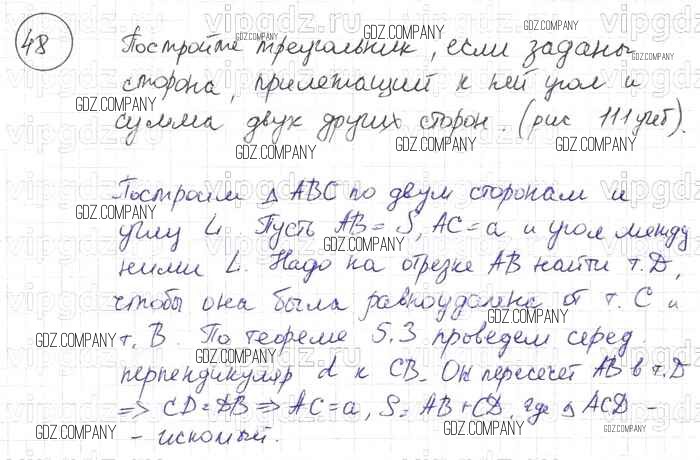 48
Постройте треугольник, если заданы
сторона, прилежащий к ней угол и
сумма двух других сторон. (рис 111 учеб).
Построим △ ABC по двум сторонам и
углу L. Пусть AB = S, AC = a и угол между
ними L. Надо на отрезке AB найти т. D,
чтобы она была равноудалена от т. C и
т. B. По теореме 5.3 проведем серед.
перпендикуляр d к CB. Он пересечет AB в т. D
=> CD = DB => AC = a, S = AB + CD, где △ ACD -
- искомый.
GDZ.COMPANY
vipgdz.ru